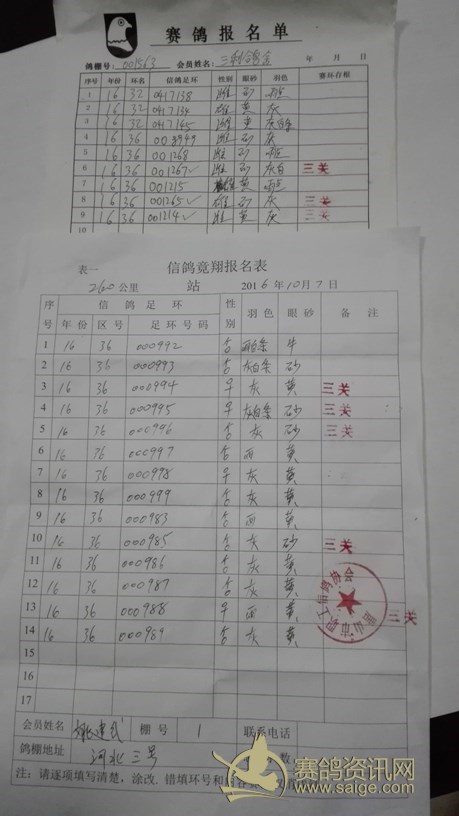 赛鸽报名单
鸽棚号: 001563 会员姓名: 三利鸽舍 年 月 日
序号 年份 环名 信鸽足环 性别 眼砂 羽色 赛环存根
1 16 32 0417138 雌 砂 雨点
2 16 32 0417134 雄 黄 灰
3 16 32 0417145 黄 灰白条
4 16 36 003949 雌 砂 灰
5 16 36 001268 雌 砂 雨点
6 16 36 001267✓ 雌 砂 灰白 三关
7 16 36 001215 雄 黄 雨点
8 16 36 001265✓ 雄 砂 灰 三关
9 16 36 001214✓ 雌 黄 灰 三关
10
表一 信鸽竟翔报名表
260公里 站 2016年10月7日
序号 信鸽足环 性别 羽色 眼砂 备注
年份 区号 足环号码
1 16 36 000992 白条 牛
2 16 36 000993 灰白条 砂
3 16 36 000994 灰 黄 三关
4 16 36 000995 灰白条 砂 三关
5 16 36 000996 灰 砂 三关
6 16 36 000997 雨 黄
7 16 36 000998 灰 黄
8 16 36 000999 灰 黄
9 16 36 000983 雨 黄
10 16 36 000985 灰 砂 三关
11 16 36 000986 灰 黄
12 16 36 000987 灰 黄
13 16 36 000988 雨 黄 三关
14 16 36 000989 灰 黄
15
16
17
唐山市职工信鸽协会
会员姓名 姚建民 棚号 1 联系电话
鸽棚地址 河北三号 数
注:请逐项填写清楚,涂改、错填环号和
赛鸽资讯网
www.saige.com